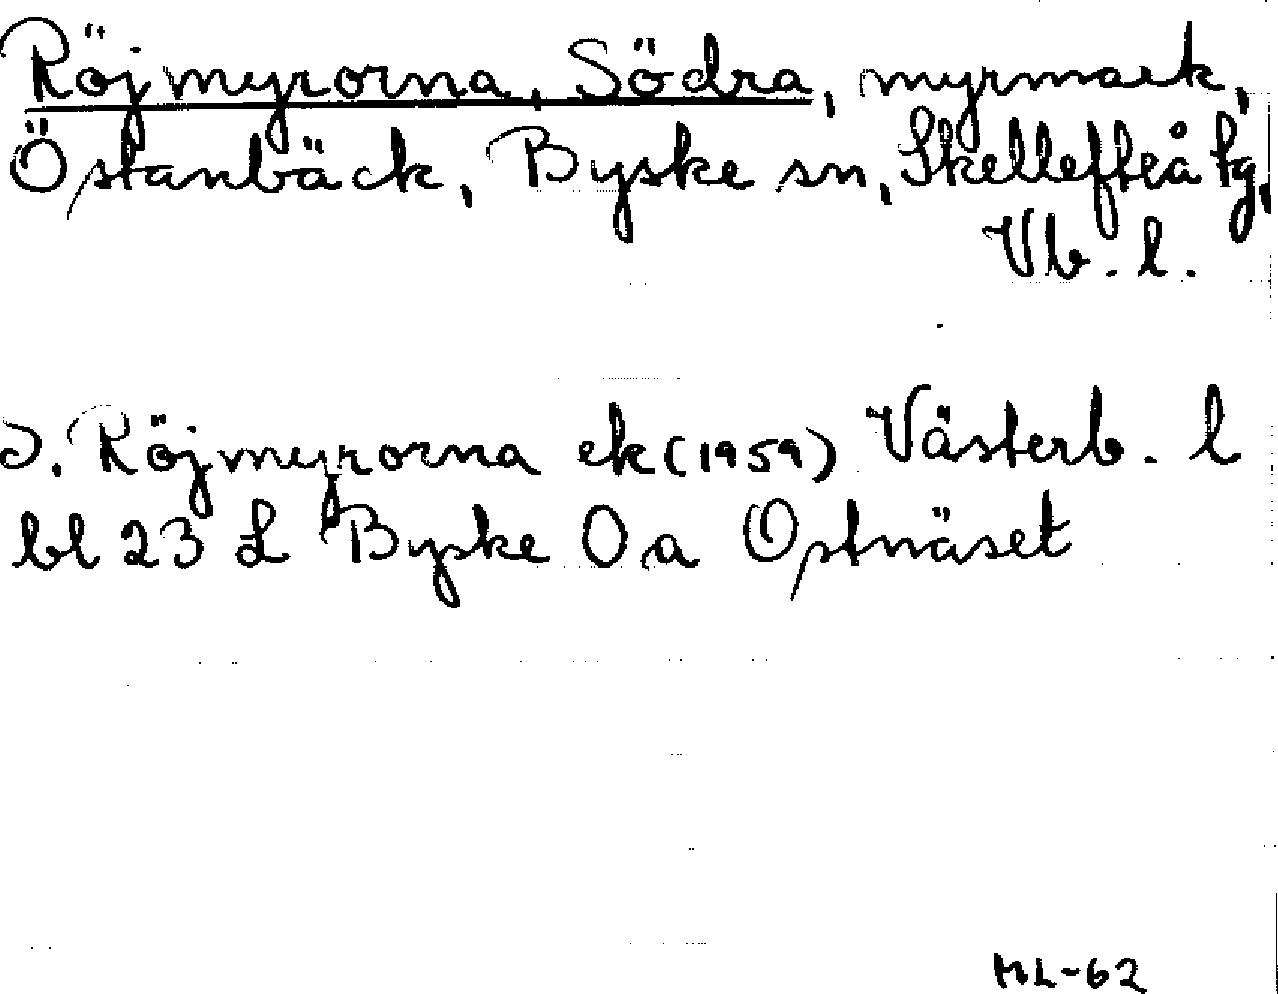 Röjmyrorna, Södra, myrmark,
Östanbäck, Byske sn, Skellefteå tg,
Vb. l.
S. Röjmyrorna ek (1959) Västerb. l
bl 23 L Byske O a Ostnäset
ML-62